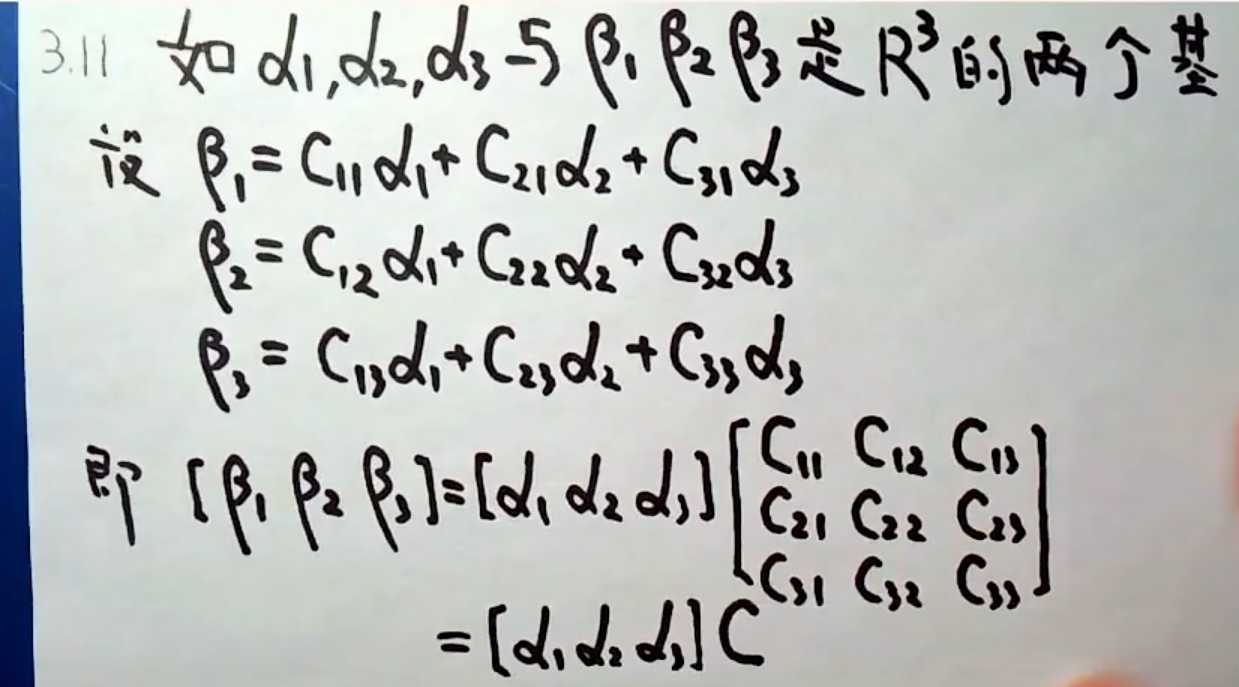 3.11 如 α₁,α₂,α₃与 β₁ β₂ β₃是 R³的两个基
设 β₁ = C₁₁α₁ + C₂₁α₂ + C₃₁α₃
β₂ = C₁₂α₁ + C₂₂α₂ + C₃₂α₃
β₃ = C₁₃α₁ + C₂₃α₂ + C₃₃α₃
即 [β₁ β₂ β₃] = [α₁ α₂ α₃] [C₁₁ C₁₂ C₁₃
C₂₁ C₂₂ C₂₃
C₃₁ C₃₂ C₃₃]
= [α₁ α₂ α₃] C